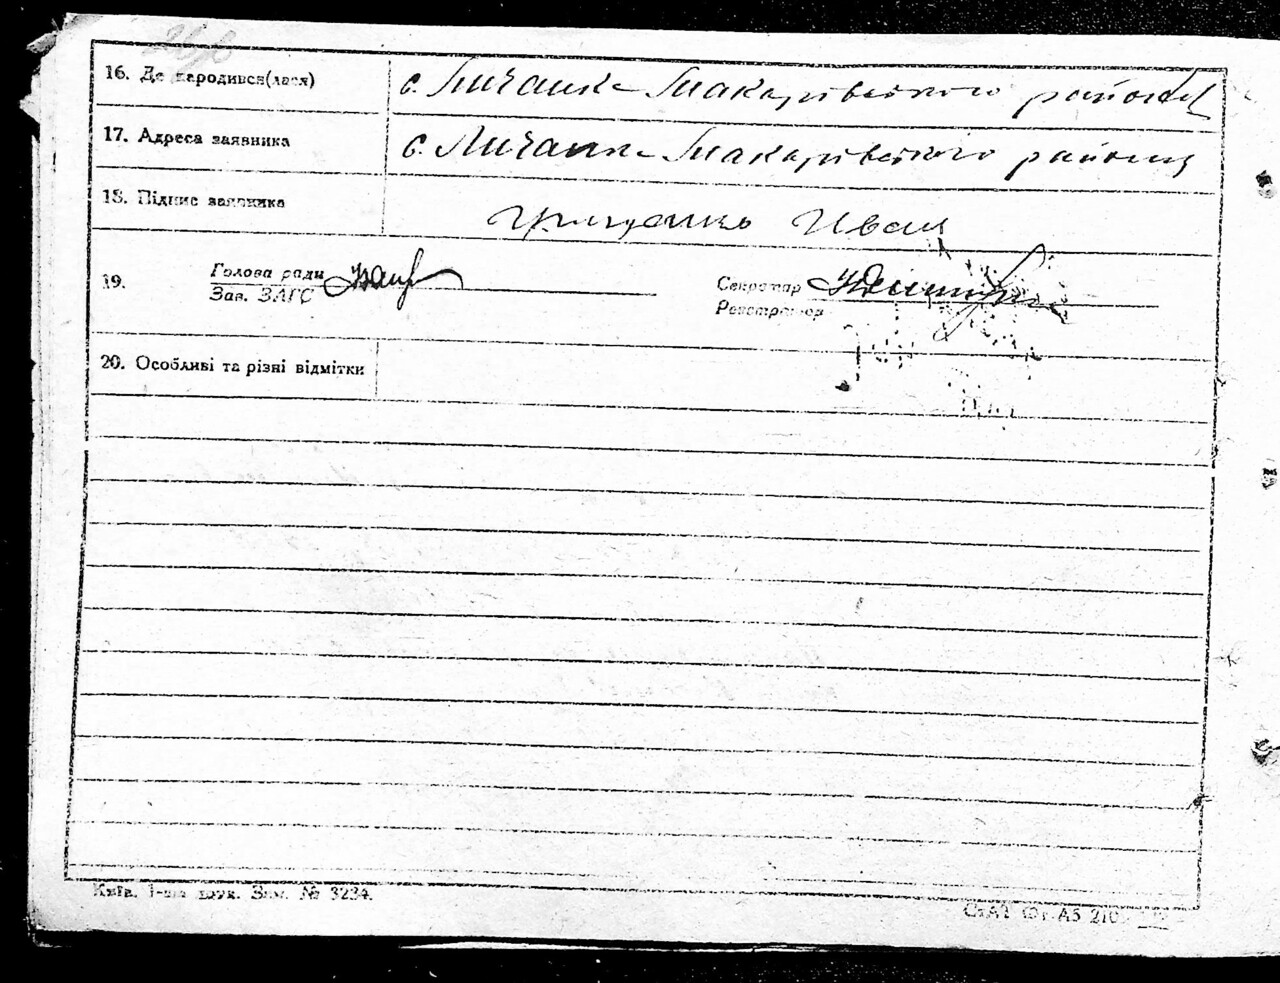 16. Де народився(лася) с. Личанка Макарівського району
17. Адреса заявника с. Личанка Макарівського району
18. Підпис заявника Грищенко Иван
19. Голова ради Секретар
Зав. ЗАГС Реєстратор
20. Особливі та різні відмітки
Київ. 1-ша друк. Зам. № 3234.
СтАТ Ф. А5 210